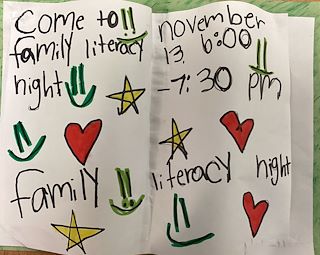 come to!!
family literacy
night!!
family !!
november
13, 6:00 !!
-7:30 pm
literacy night
!!